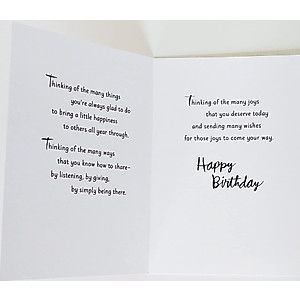 Thinking of the many things
you're always glad to do
to bring a little happiness
to others all year through.
Thinking of the many ways
that you know how to share—
by listening, by giving,
by simply being there.
Thinking of the many joys
that you deserve today
and sending many wishes
for those joys to come your way.
Happy
Birthday